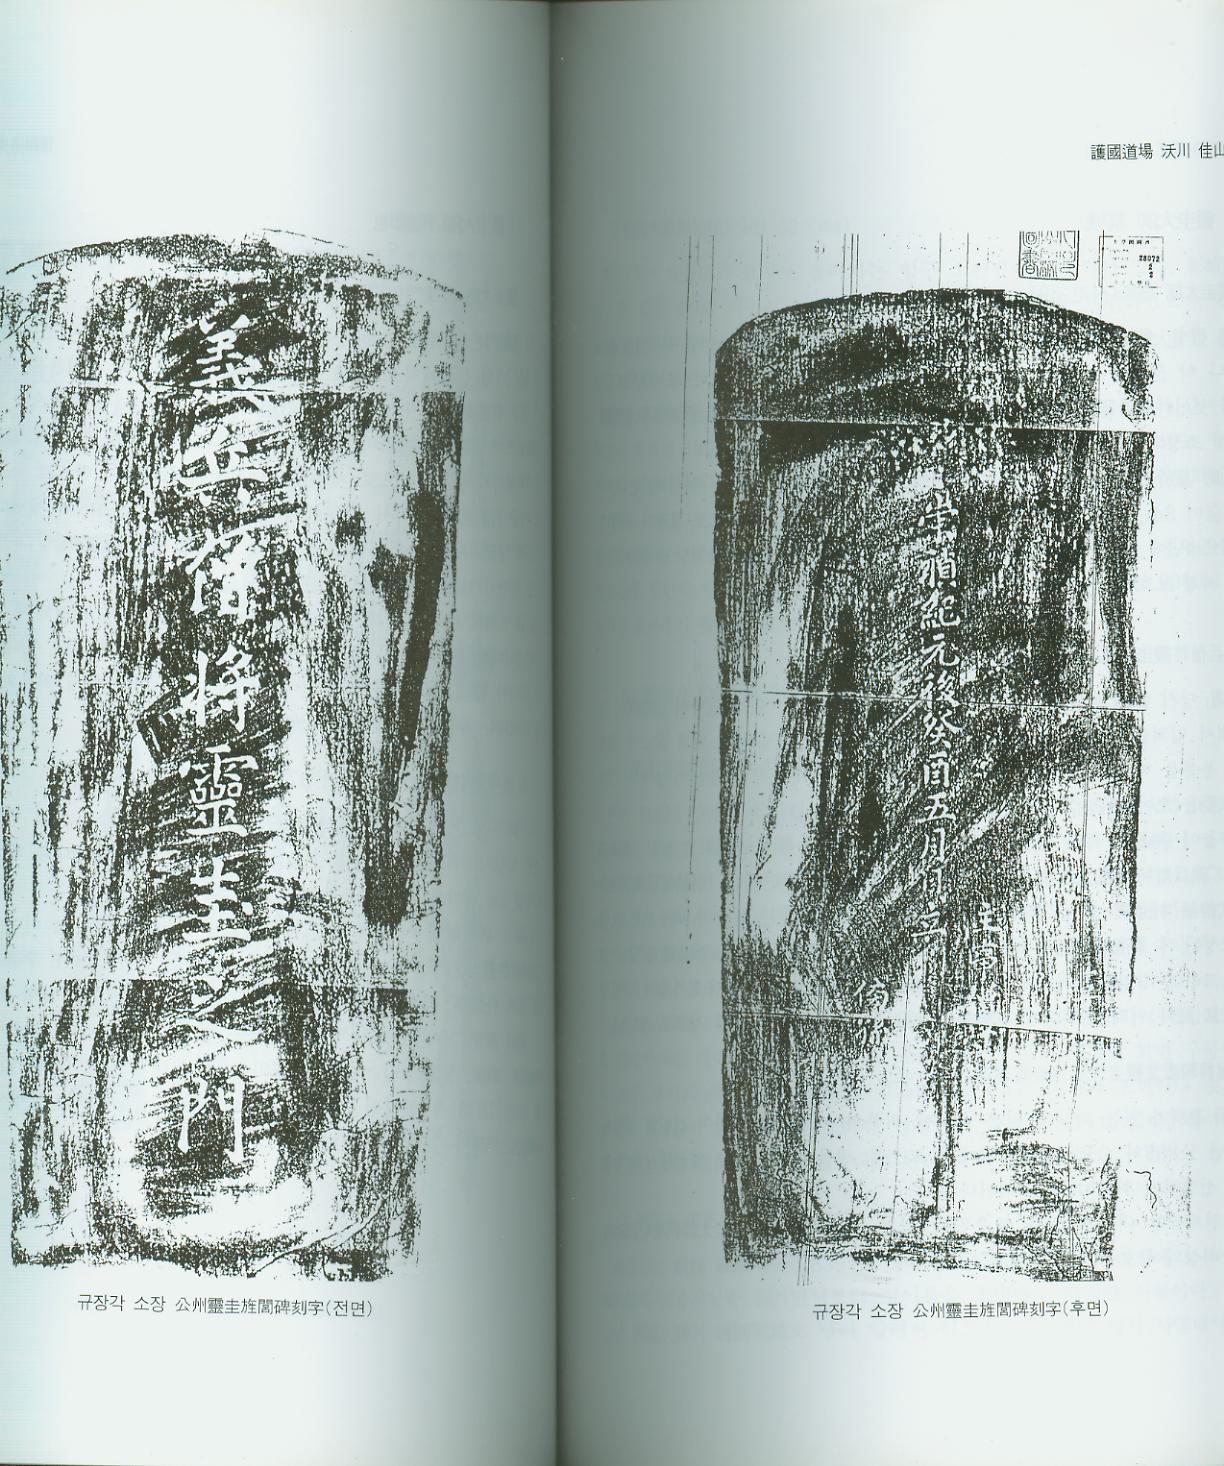 護國道場 沃川 佳山
義兵僧將靈圭之門
28072
2
崇禎紀元後癸酉五月日立
규장각 소장 公州靈圭旌閭碑刻字(전면)
규장각 소장 公州靈圭旌閭碑刻字(후면)